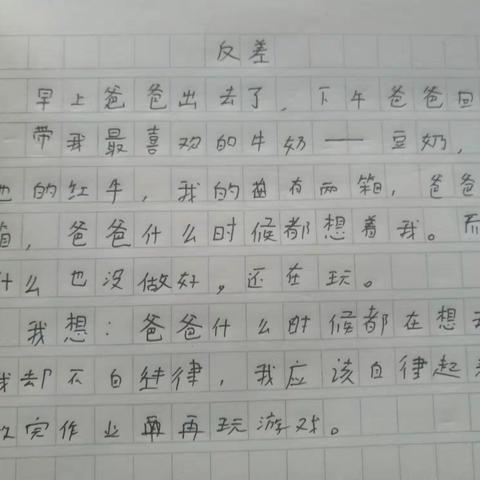 反差
早上爸爸出去了，下午爸爸回
带我最喜欢的牛奶——豆奶，
的红牛，我的有两箱，爸爸
箱，爸爸什么时候都想着我。而
什么也没做好，还在玩。
我想：爸爸什么时候都在想
我却不自律，我应该自律起
完作业再玩游戏。